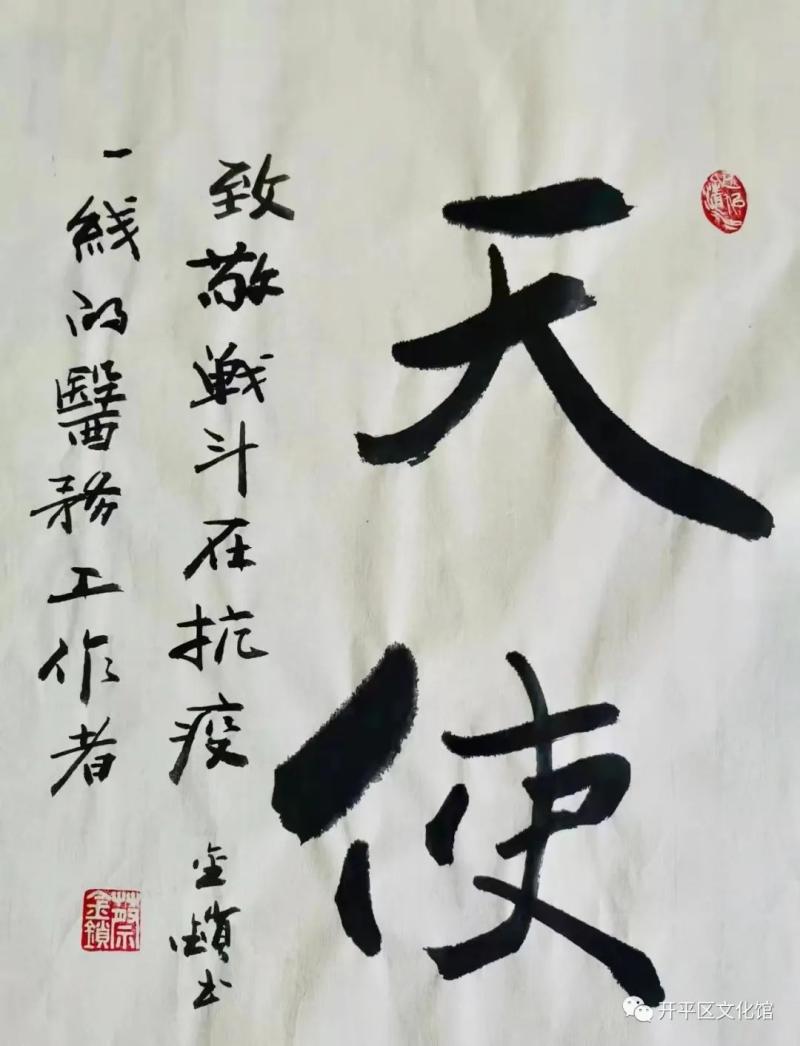 天使
致敬戦斗在抗疫
一线的醫務工作者
金鎖书
蔡金鎖
开平区文化馆